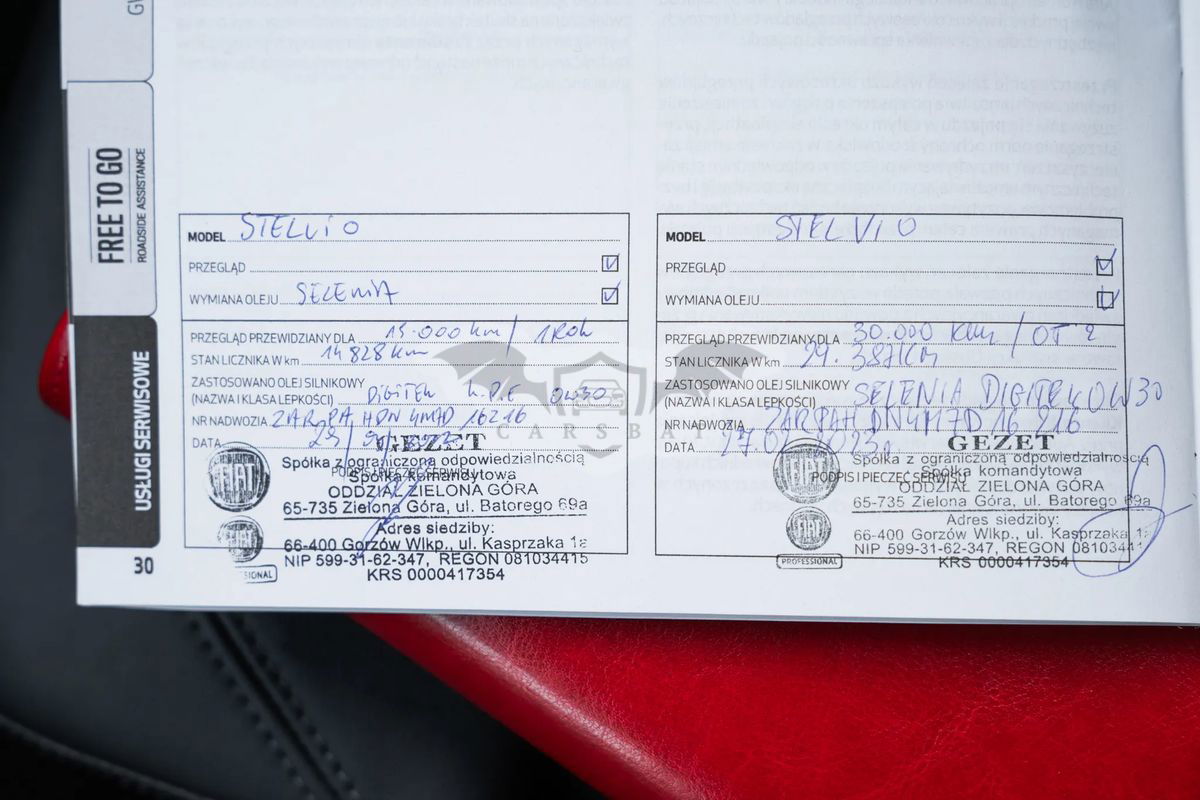 FREE TO GO
ROADSIDE ASSISTANCE
USŁUGI SERWISOWE
30
MODEL STELVIO
PRZEGLĄD
WYMIANA OLEJU SELENIA
PRZEGLĄD PRZEWIDZIANY DLA 15.000 km / 1 ROK
STAN LICZNIKA W km 14 828 km
ZASTOSOWANO OLEJ SILNIKOWY
(NAZWA I KLASA LEPKOŚCI) DIGITEK K.P.E 0W30
NR NADWOZIA
DATA
PODPIS I PIECZĘĆ SERWISU
GEZET
Spółka z ograniczoną odpowiedzialnością
Spółka komandytowa
ODDZIAŁ ZIELONA GÓRA
65-735 Zielona Góra, ul. Batorego 69a
Adres siedziby:
66-400 Gorzów Wlkp., ul. Kasprzaka 1a
NIP 599-31-62-347, REGON 081034415
KRS 0000417354
FIAT
MODEL STELVIO
PRZEGLĄD
WYMIANA OLEJU
PRZEGLĄD PRZEWIDZIANY DLA 30.000 km / OT 2
STAN LICZNIKA W km 29.387km
ZASTOSOWANO OLEJ SILNIKOWY
(NAZWA I KLASA LEPKOŚCI) SELENIA DIGITEK 0W30
NR NADWOZIA
DATA
PODPIS I PIECZĘĆ SERWISU
GEZET
Spółka z ograniczoną odpowiedzialnością
Spółka komandytowa
ODDZIAŁ ZIELONA GÓRA
65-735 Zielona Góra, ul. Batorego 69a
Adres siedziby:
66-400 Gorzów Wlkp., ul. Kasprzaka
NIP 599-31-62-347, REGON
KRS 0000417354
FIAT
PROFESSIONAL